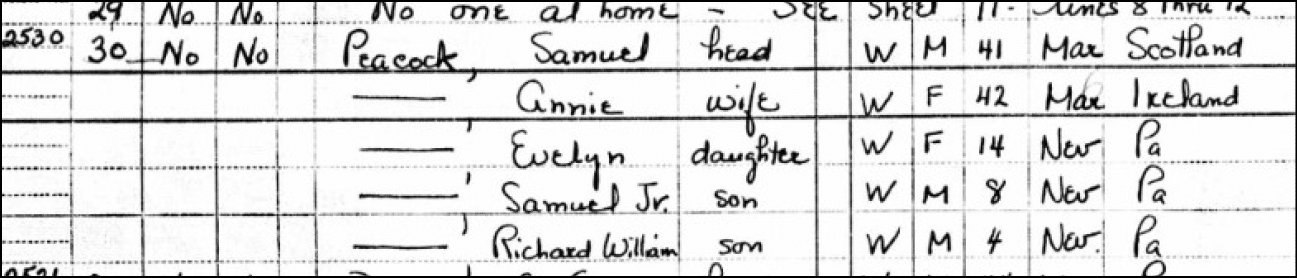 29 No No No one at home - SEE Sheet 11. Lines 8 thru 12
2530 30 No No Peacock, Samuel head W M 41 Mar Scotland
——— Annie wife W F 42 Mar Ireland
———, Evelyn daughter W F 14 Nev Pa
———, Samuel Jr. son W M 8 Nev Pa
———, Richard William son W M 4 Nev. Pa